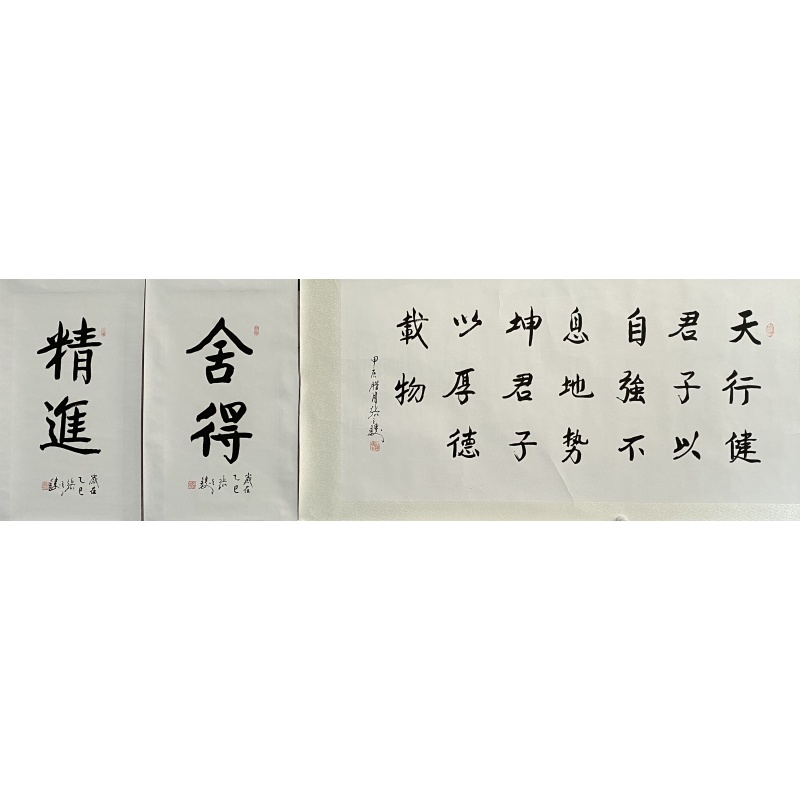 天行健
君子以
自強不
息地势
坤君子
以厚德
載物
甲辰腊月張
舍得
歲在
乙巳
精進
歲在
乙巳